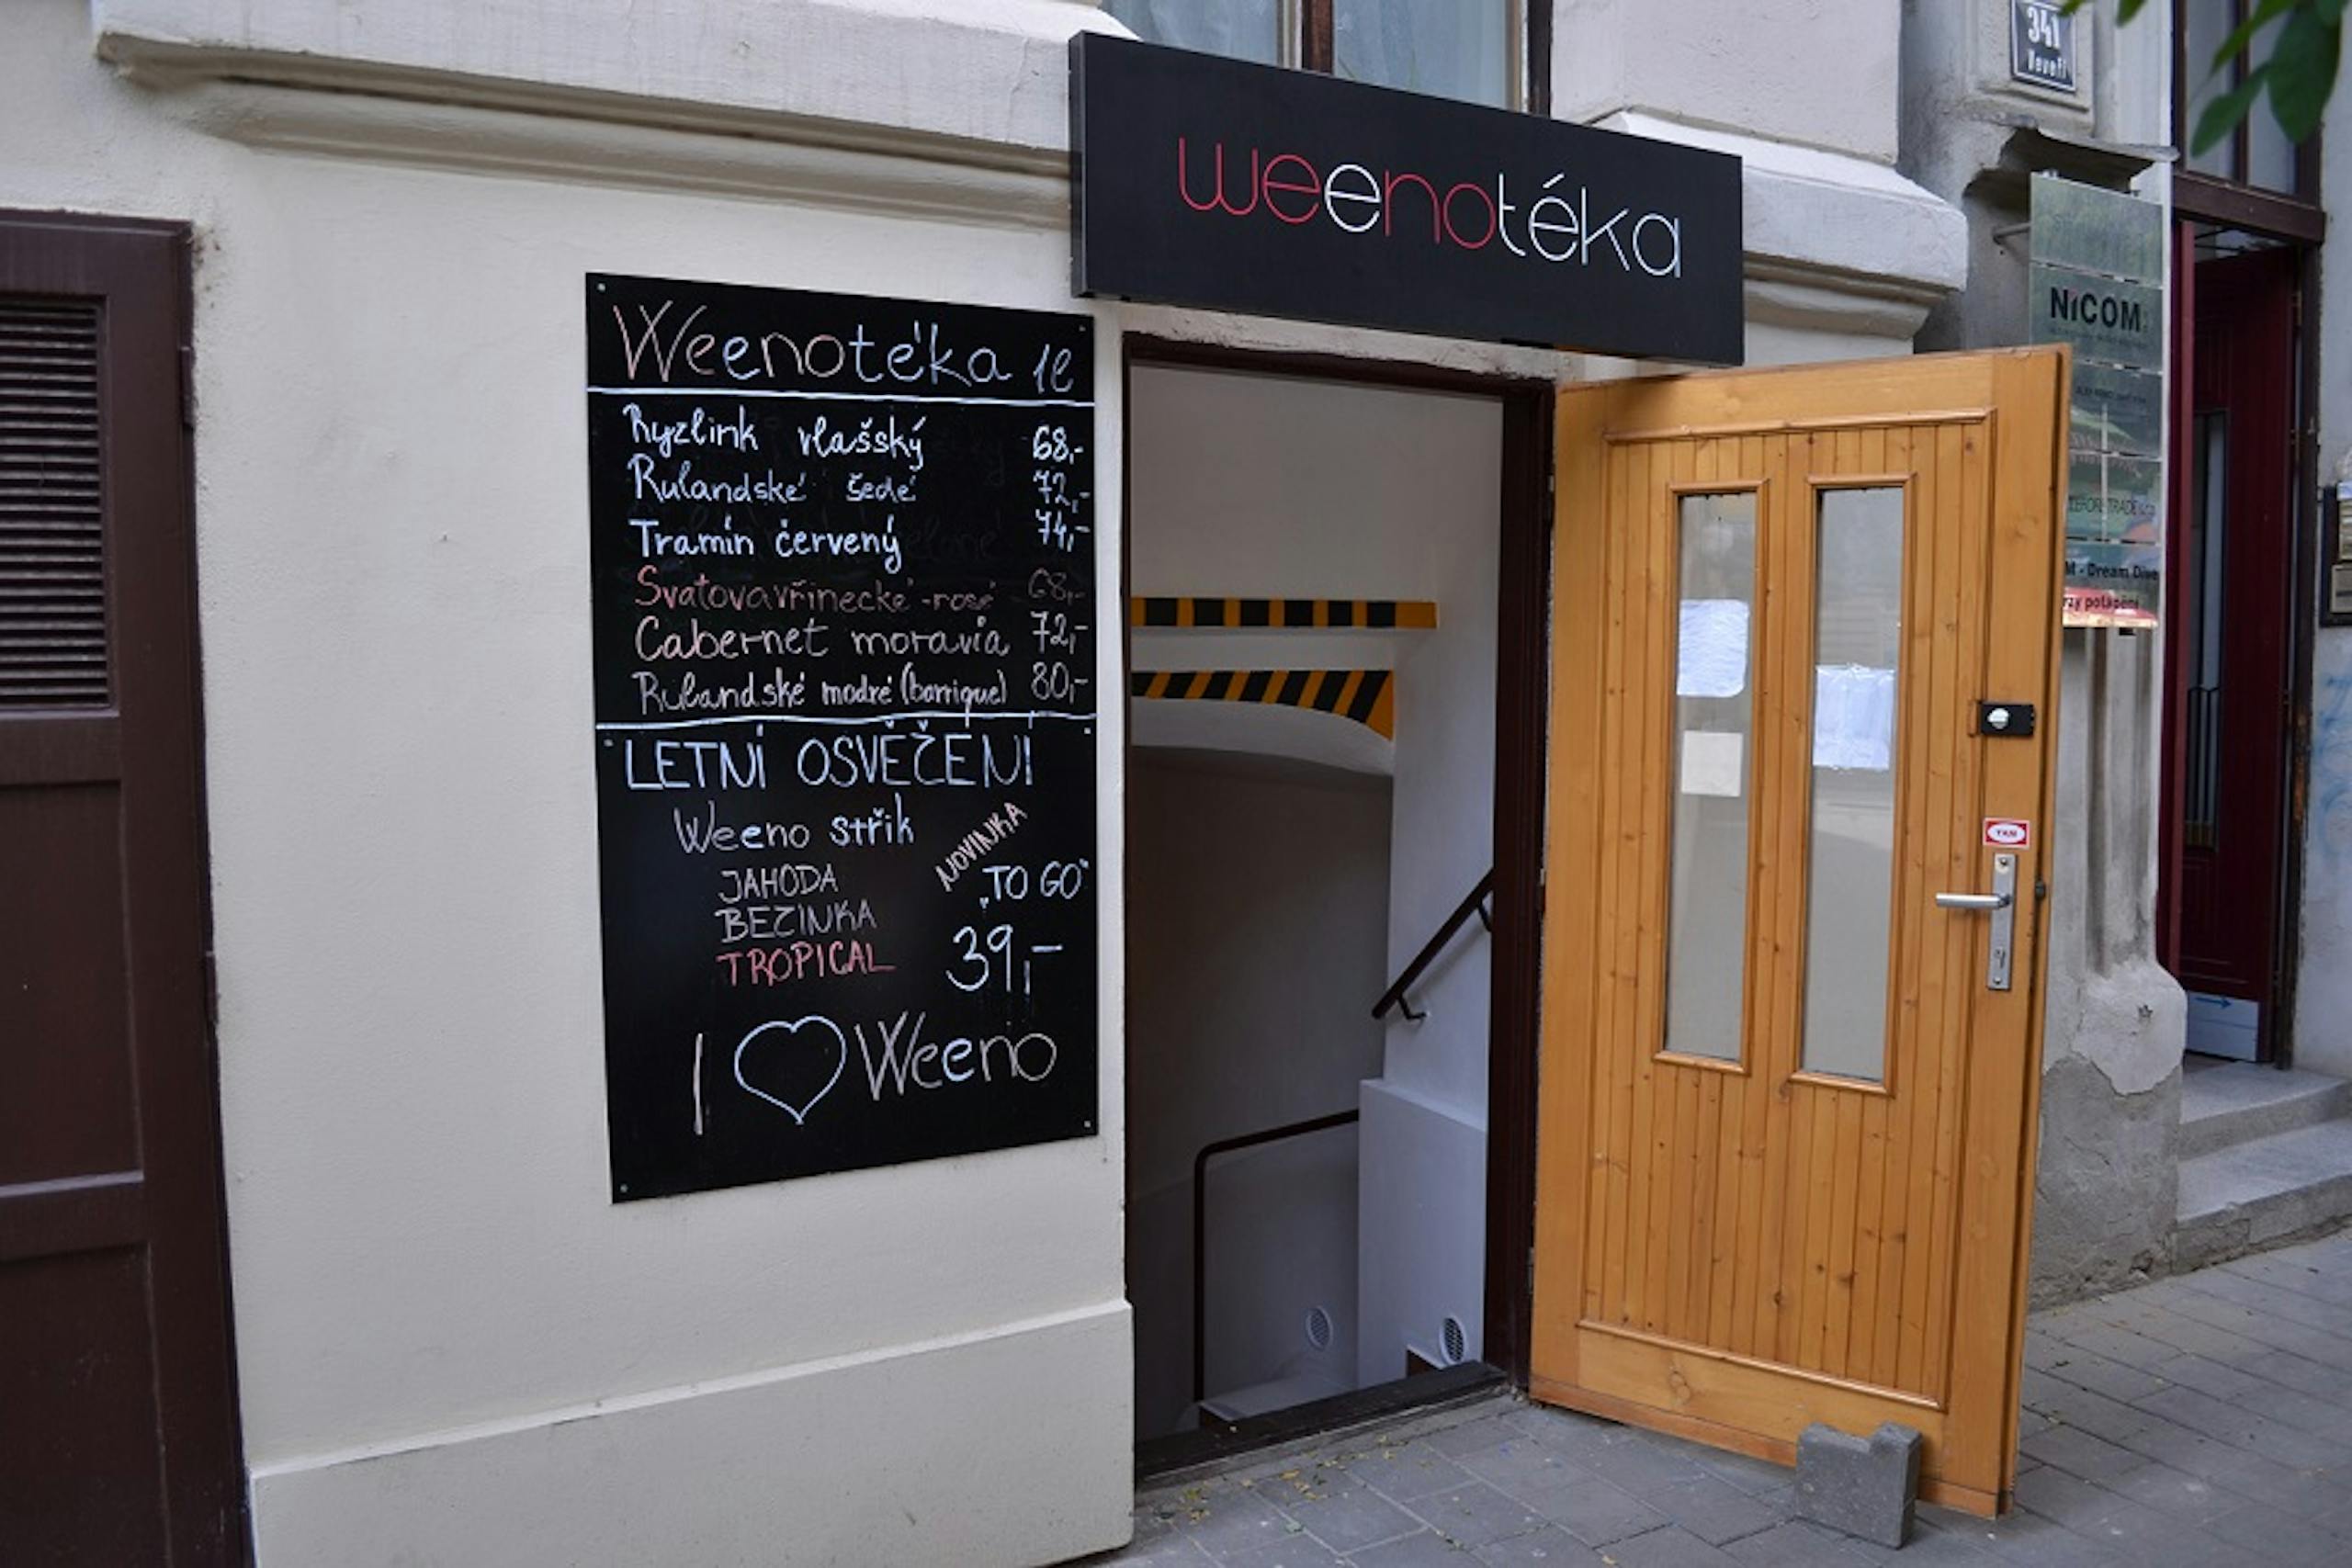 weenotéka
341
Veveří
NiCOM
M - Dream Dive
rzy potápění
YAM
Weenotéka 1l
Ryzlink vlašský 68,-
Rulandské šedé 72,-
Tramín červený 74,-
Svatovavřinecké-rosé 68,-
Cabernet moravia 72,-
Rulandské modré (barrique) 80,-
LETNÍ OSVĚČENÍ
Weeno střik
NOVINKA
JAHODA
„TO GO"
BEZINKA
TROPICAL
39,-
I ♡ Weeno